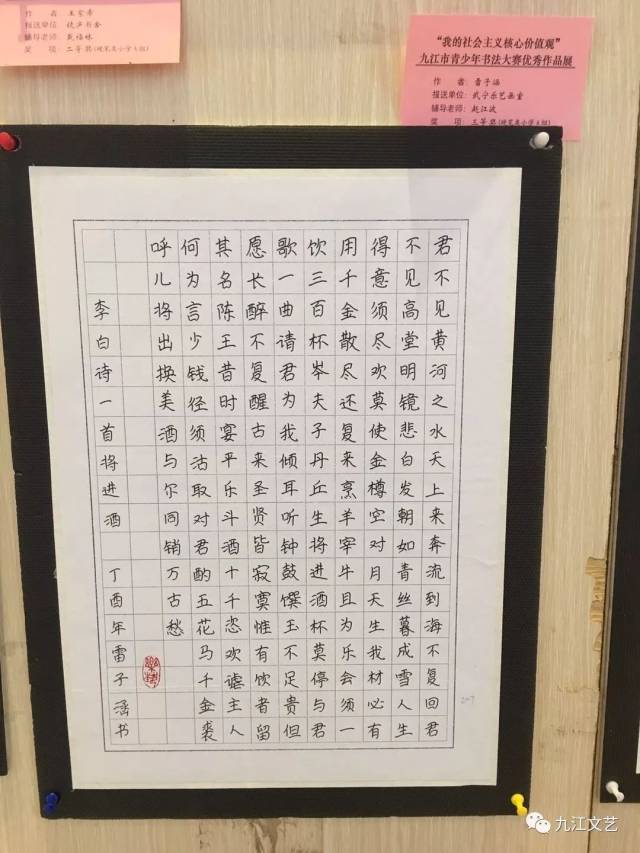 作 者：
报送单位：
辅导老师：
奖 项：二等奖(硬笔类小学A组)
“我的社会主义核心价值观”
九江市青少年书法大赛优秀作品展
作 者：雷子涵
报送单位：武宁乐艺画童
辅导老师：赵江波
奖 项：三等奖(硬笔类小学A组)
君不见黄河之水天上来奔流到海不复回君
不见高堂明镜悲白发朝如青丝暮成雪人生
得意须尽欢莫使金樽空对月天生我材必有
用千金散尽还复来烹羊宰牛且为乐会须一
饮三百杯岑夫子丹丘生将进酒杯莫停与君
歌一曲请君为我倾耳听钟鼓馔玉不足贵但
愿长醉不复醒古来圣贤皆寂寞惟有饮者留
其名陈王昔时宴平乐斗酒十千恣欢谑主人
何为言少钱径须沽取对君酌五花马千金裘
呼儿将出换美酒与尔同销万古愁
李白诗一首将进酒 丁酉年雷子涵书
九江文艺